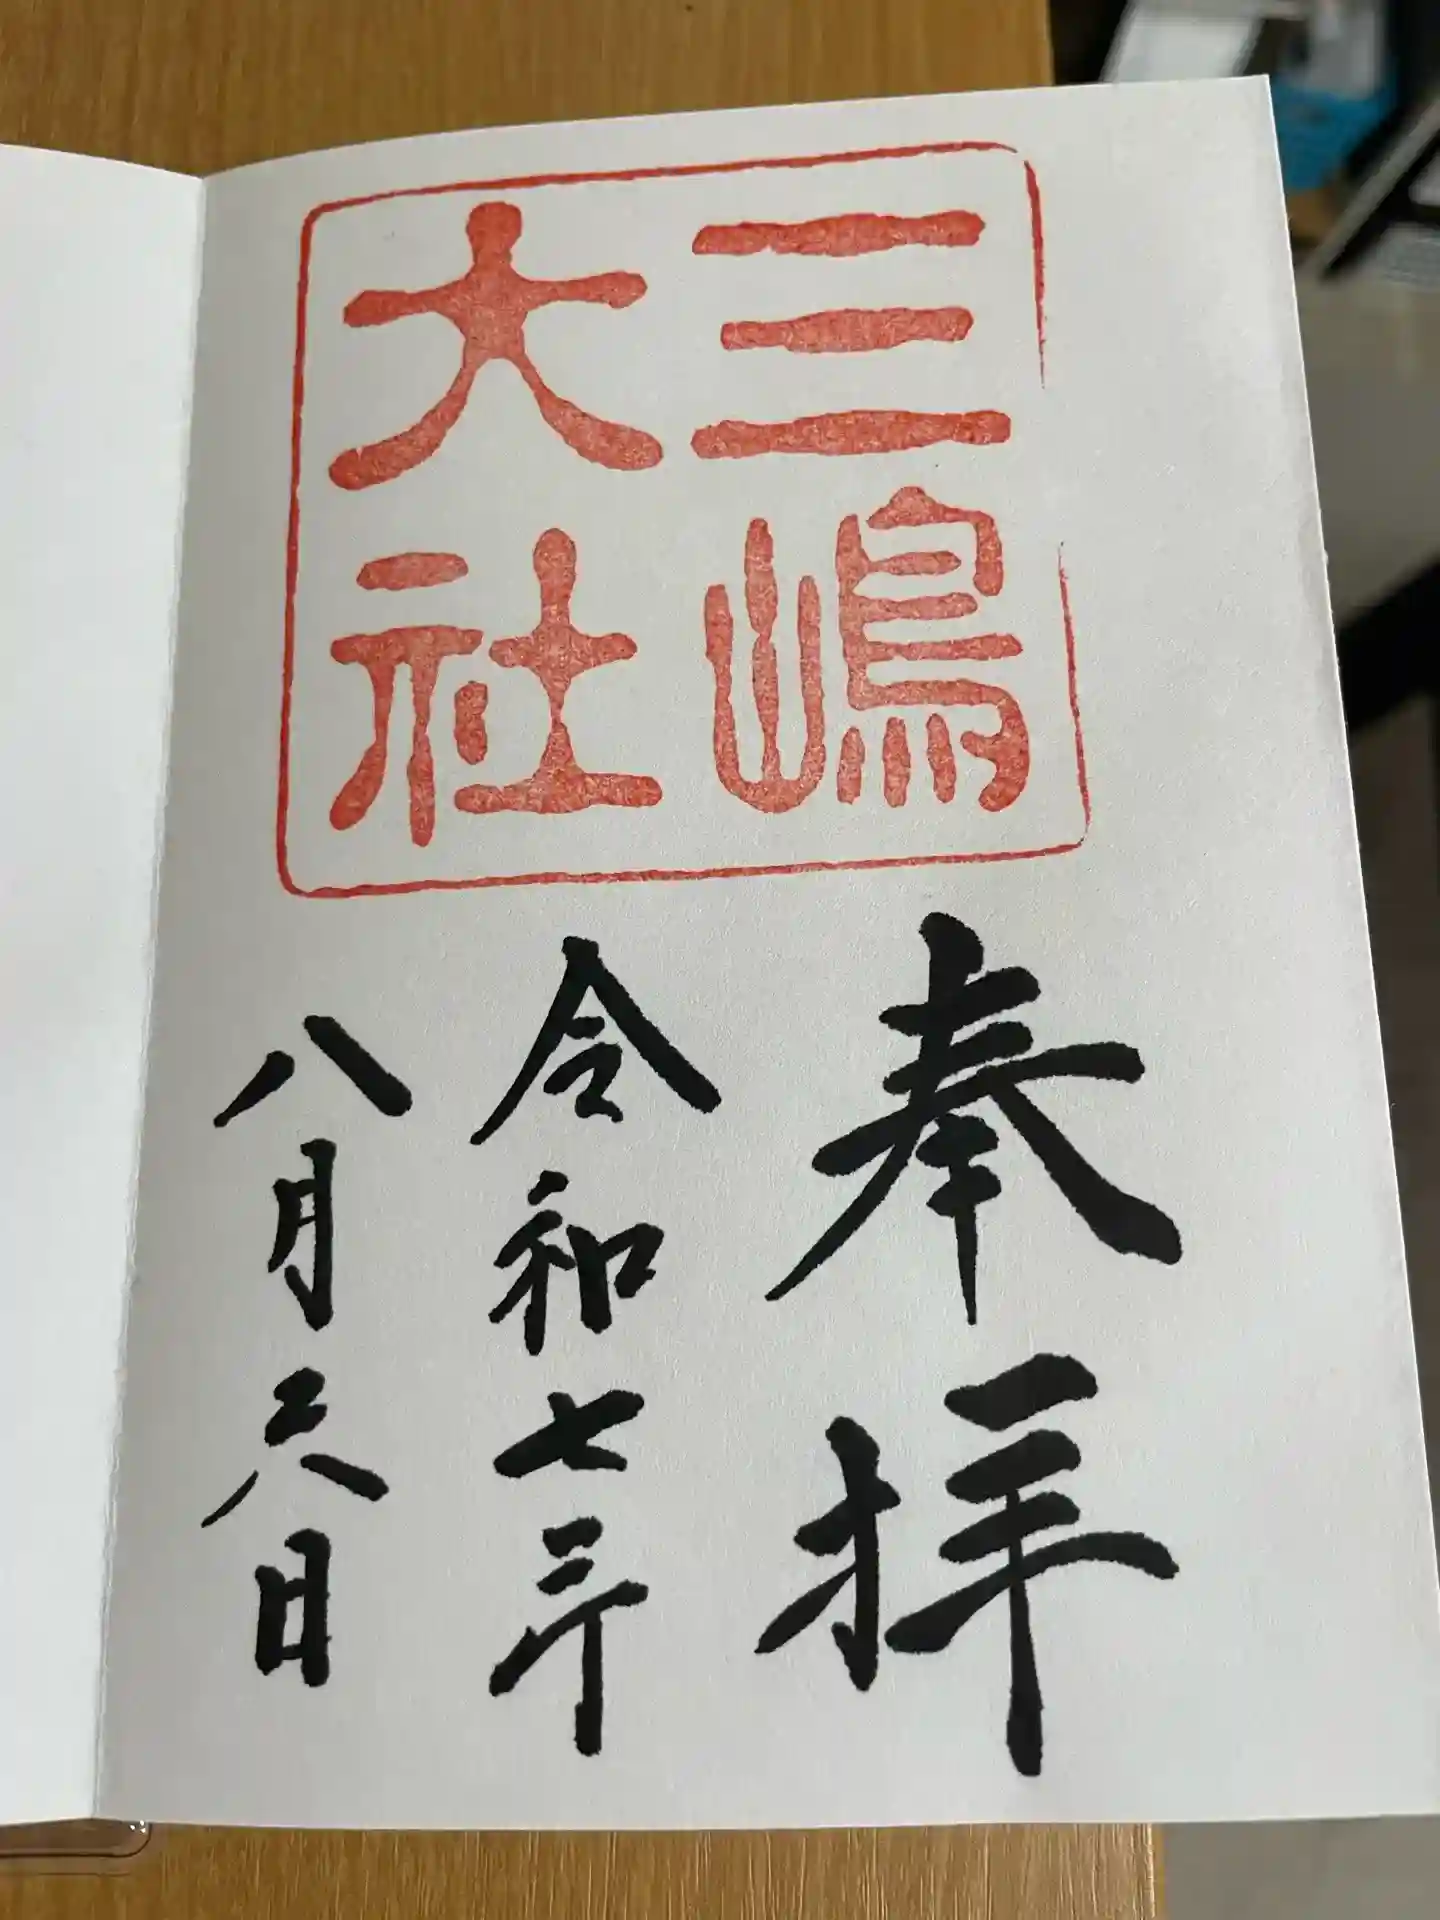 三嶋
大社
奉拝
令和七年
八月二八日